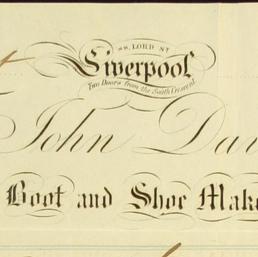 88, LORD ST
Liverpool
Two Doors from the South Crescent
John Dav
Boot and Shoe Make